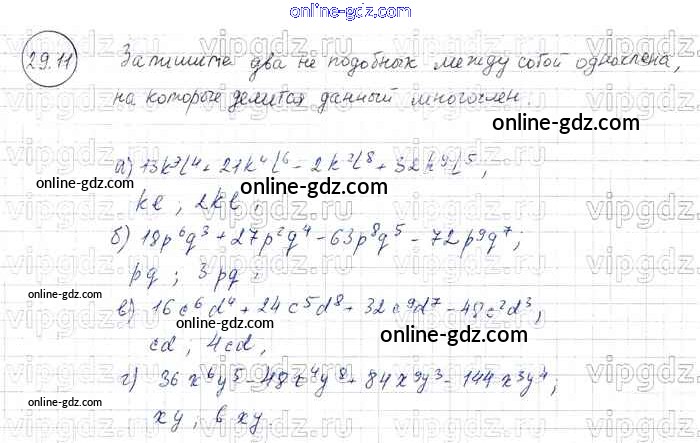 online-gdz.com
29.11 Запишите два не подобных между собой одночлена,
на которые делится данный многочлен.
online-gdz.com
а) 13k⁷l⁴ + 21k⁴l⁶ - 2k²l⁸ + 32k⁹l⁵;
online-gdz.com
online-gdz.com
kl; 2kl;
б) 18p⁶q³ + 27p²q⁴ - 63p⁸q⁵ - 72p⁹q⁷;
online-gdz.com
pq; 3pq;
online-gdz.com
online-gdz.com
в) 16c⁶d⁴ + 24c⁵d⁸ + 32c⁹d⁷ - 48c²d³,
cd, 4cd,
online-gdz.com
г) 36x⁶y⁵ - 48x⁴y⁸ + 84x⁹y³ - 144x³y⁴;
xy, 6xy.
online-gdz.com
vipgdz.com